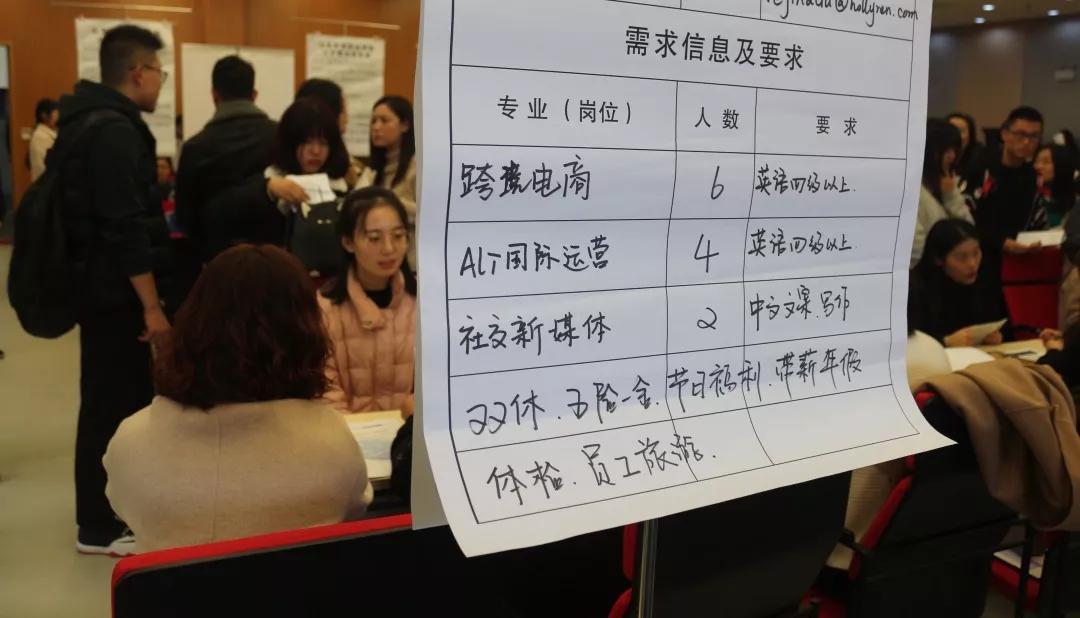 @hollyren.com
需求信息及要求
专业（岗位） 人数 要求
跨境电商 6 英语四级以上.
ALT国际运营 4 英语四级以上.
社交新媒体 2 中文文案.写作
双休.五险一金.节日福利.带薪年假
体检.员工旅游.